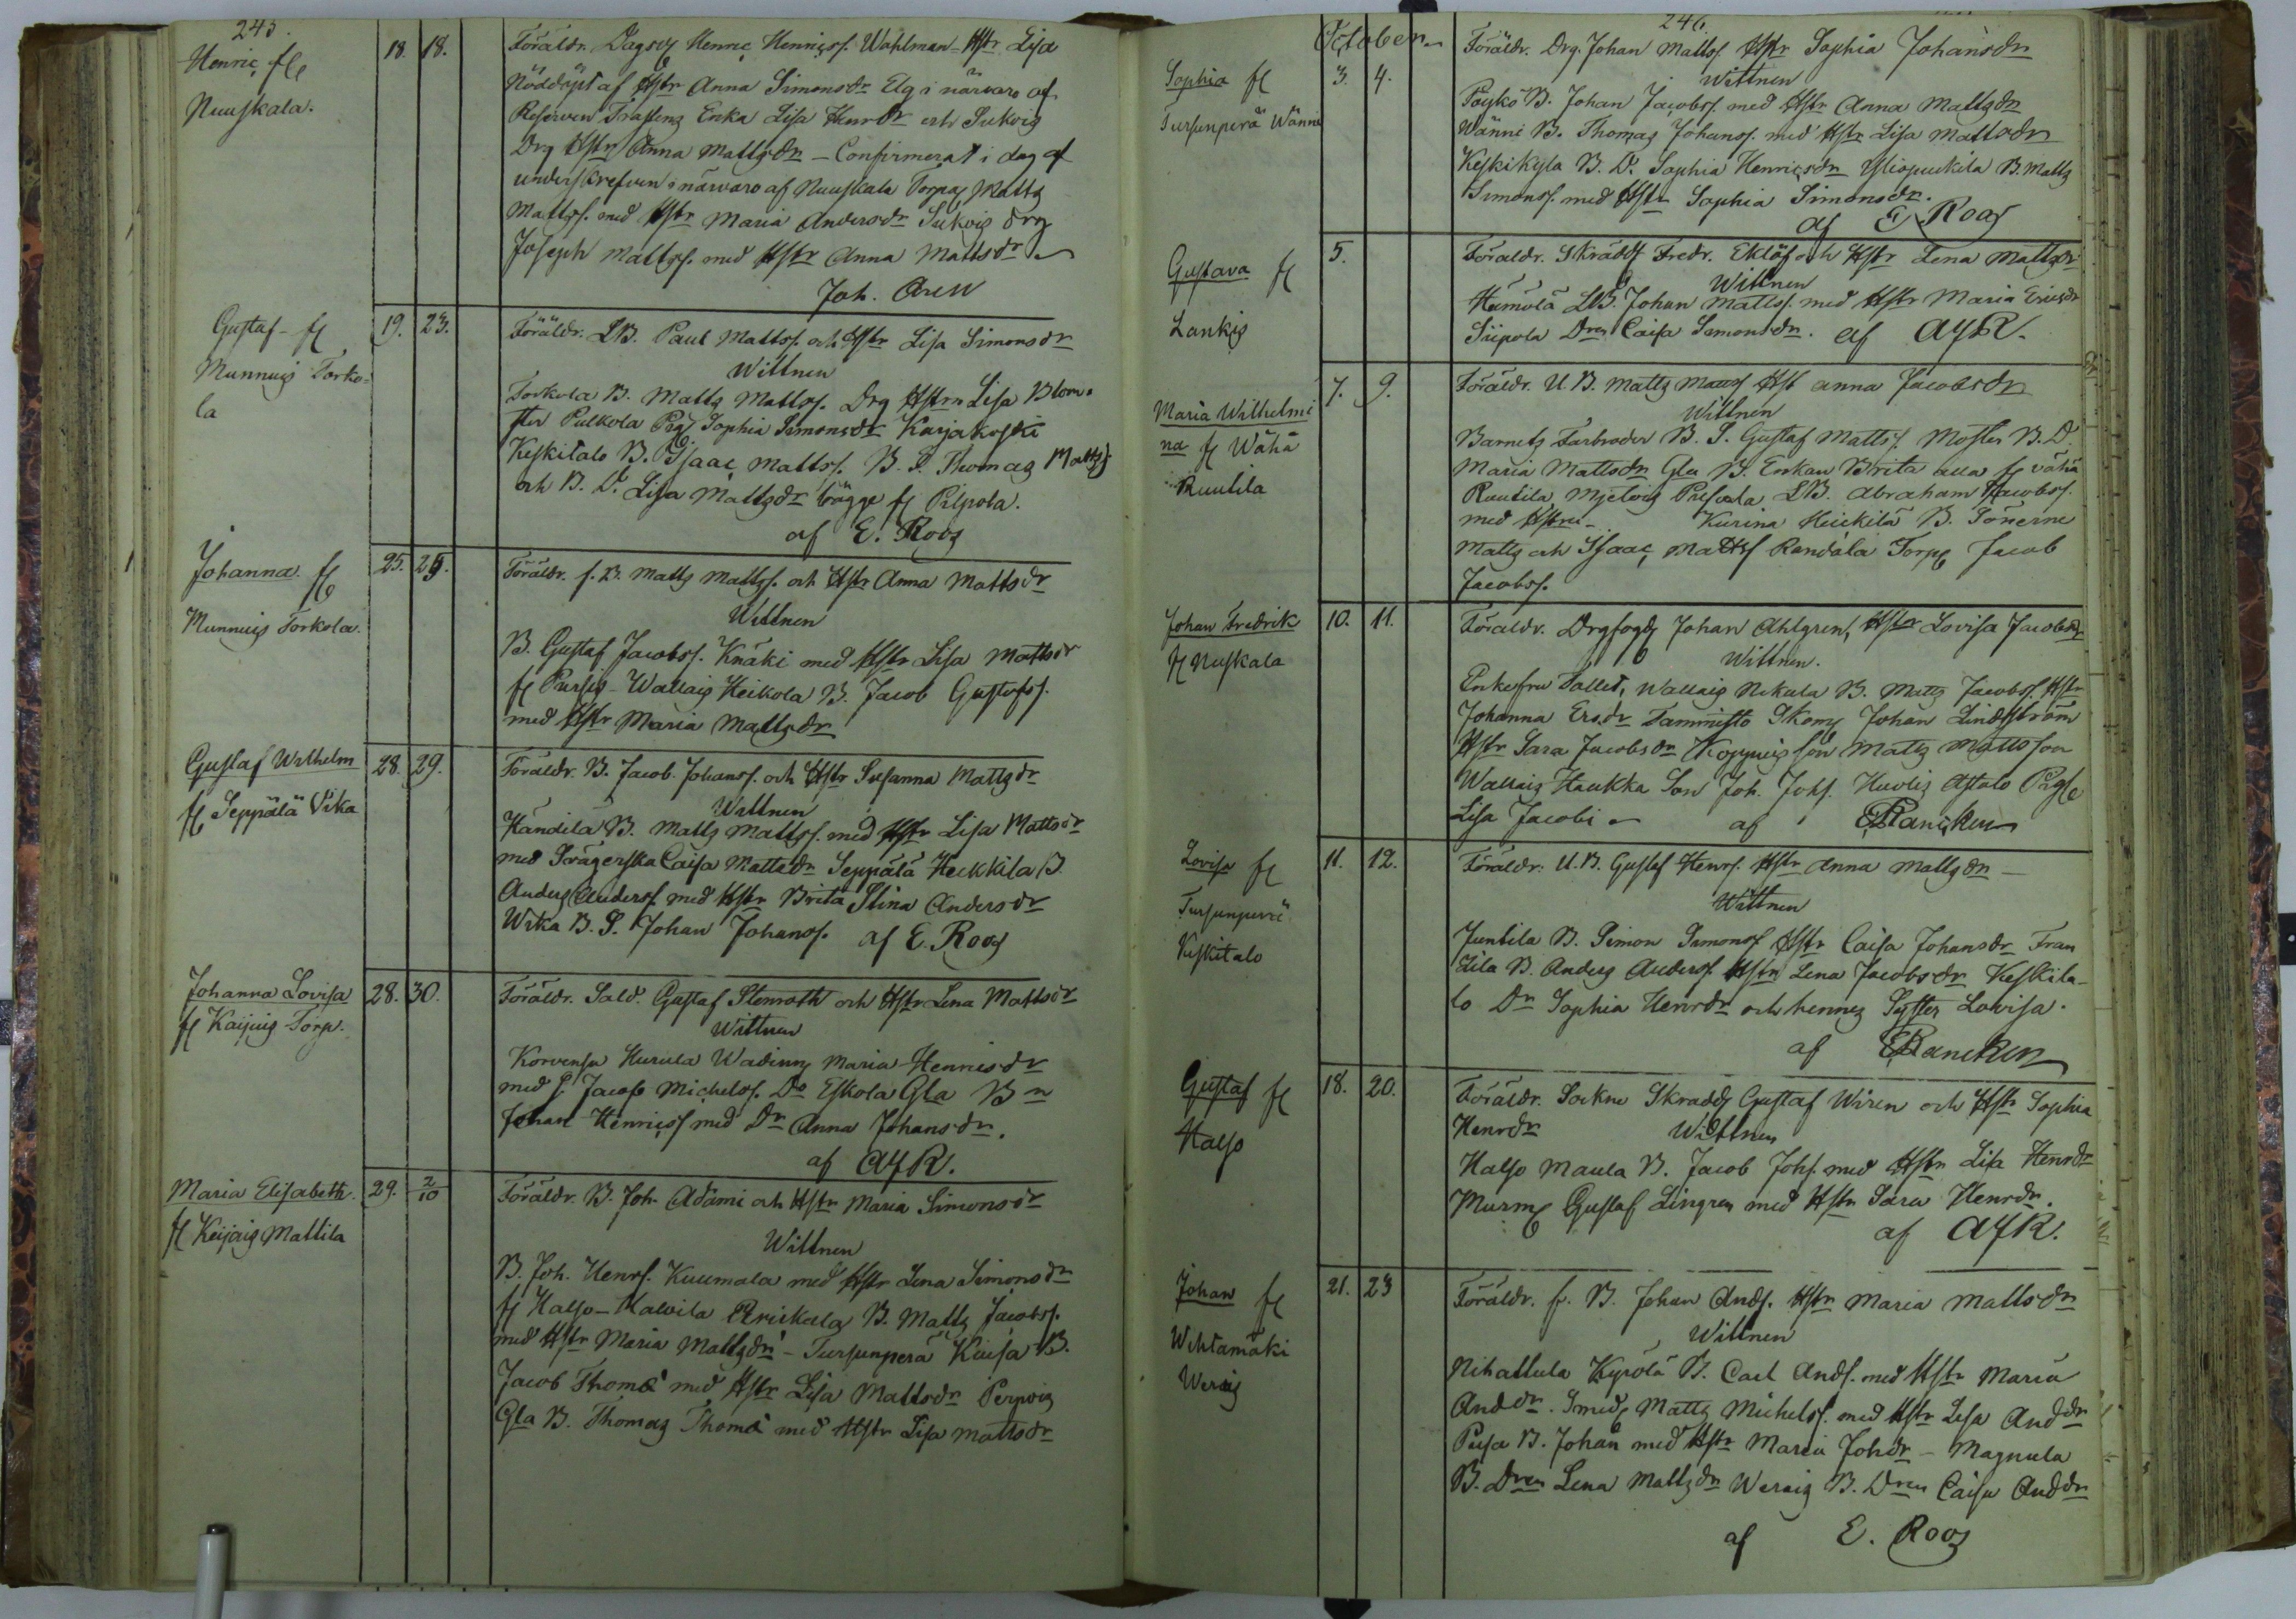 245.
Henric fr
Nuuskala.
18. 18.
Föräldr. Dagsv Henric Henricss. Wahlman Hstr Lisa
Nöddöpt af Hstr Anna Simonsdr Elg i närvaro af
Enka Lisa Henrdr och
Drg Hstr Anna Mattsdr – Confirmerat i dag af
underskrefven i närvaro af Nuuskala Torpar Matts
Mattss. med Hstr Maria Andersdr Drg
Joseph Mattss. med Hstr Anna Mattsdr
Joh. Aren
Gustaf – fr
Munnuis Torko-
la
19. 23.
Föräldr. LB. Paul Mattss. och Hstr Lisa Simonsdr
Wittnen
Torkola B. Matts Mattss. Drg Hstrn Lisa Blom-
ster Pulkola Pig Sophia Simonsdr Karjakoski
Keskitalo B. Isaac Mattss. B. S. Thomas Mattss
och B. D. Lisa Mattsdr bägge fr Pilpola.
af E. Roos
Johanna. fr
Munnuis Torkola.
25. 25.
Föräldr. f. B. Matts Mattss. och Hstr Anna Mattsdr
Wittnen
B. Gustaf Jacobss. Knäki med Hstr Lisa Mattsdr
fr Pursis – Wallais Heikola B. Jacob Gustafss.
med Hstr Maria Mattsdr
Gustaf Wilhelm
fr Seppälä Vika
28. 29.
Föräldr. B. Jacob Johanss. och Hstr Susanna Mattsdr
Wittnen
Kandila B. Matts Mattss. med Hstr Lisa Mattsdr
med Svägerska Caisa Mattsdr Seppälä Heikkila B.
Anders Anderss. med Hstr Brita Stina Andersdr
Wika B. S. Johan Johanss. af E. Roos
Johanna Lovisa
fr Kaijais Torp.
28. 30.
Föräldr. Sald. Gustaf Stenroth och Hstr Lena Mattsdr
Wittnen
Korvensu Hurula Maria Henricsdr
med S. Jacob Michelss. Do Eskola Gla Bn
Johan Henricss med Dr Anna Johansdr.
af AFR.
Maria Elisabeth.
fr Keijais Mattila
29. 2/10
Föräldr. B. Joh. Adami och Hstr Maria Simonsdr
Wittnen
B. Joh. Henrs. Kuumala med Hstr Lena Simonsdr
fr Kalso – Kawila Prickala B. Matts Jacobss.
med Hstr Maria Mattsdr – Tursunperä Kaisa B.
Jacob Thomä med Hstr Lisa Mattsdr Perpois
Gla B. Thomas Thomä med Hstr Lisa Mattsdr
246.
October
Sophia fr
Tursunperä Wänni
3. 4.
Föräldr. Drg. Johan Mattss. Hstr Sophia Johansdr
Wittnen
Poyko B. Johan Jacobss. med Hstr Anna Mattsdr
Wänni B. Thomas Johanss. med Hstr Lisa Mattsdr
Keskikyla B. D. Sophia Henricsdr B. Matts
Simonss. med Hstr Sophia Simonsdr.
af E Roos
Gustava fr
Lankis
5.
Föräldr. Skrädd Fredr. Eklöf och Hstr Lena Mattsdr
Wittnen
Hämölä LB. Johan Mattss. med Hstr Maria Ericsdr
Siipola Drn Caisa Simonsdr. af AFR.
Maria Wilhelmi
na fr Wähä
Ruutila
7. 9.
Föräldr. U. B. Matts Mattss Hst Anna Jacobsdr
Wittnen
Barnets Farbroder B. S. Gustaf Mattss. Moster B. D.
Maria Mattsdr Gla B. Enkan Brita alla fr vähä
Ruutila LB. Abraham Jacobss.
med Hstru – Kurina Heickilä B. Sönerne
Matts och Isaac Mattss Randala Torp Jacob
Jacobss.
Johan Fredrik
fr Nuskala
10. 11.
Föräldr. Drgfogd Johan Ahlgren, Hstr Lovisa Jacobsdr
Wittnen.
Enkefru Tallet, Wallais Nikula B. Matts Jacobss. Hstr
Johanna Ersdr Tammisto Skom Johan Lindström
Hstr Sara Jacobsdr Koppuis Son Matts Mattsson
Wallais Haukka Son Joh. Johs. Huvlis Astalo Pig
Lisa Jacobi – af
Lovisa fr
Tursunperä
Keskitalo
11. 12.
Föräldr. U. B. Gustaf Henrs. Hstr Anna Mattsdr –
Wittnen
Juntila B. Simon Simonss Hstr Caisa Johansdr Fran
tila B. Anders Anderss. Hstr Lena Jacobsdr Keskita-
lo Dr Sophia Henrdr och hennes Syster Lovisa.
af
Gustaf fr
Kalso
18. 20.
Föräldr. Sockne Skradd Gustaf Wiren och Hstr Sophia
Henrdr Wittnen
Kalso Maula B. Jacob Johs. med Hstr Lisa Henrdr
Murm Gustaf Lingren med Hstr Sara Henrdr.
af AFR.
Johan fr
Wihtamäki
Werais
21. 23
Föräldr. fr. B. Johan Ands. Hstr Maria Mattsdr
Wittnen
Nihattula Kyrölä B. Carl Ands. med Hstr Maria
Anddr. Smed Matts Michelss. med Hstr Lisa Anddr
Pusa B. Johan med Hstr Maria Johdr – Magnula
B. Dren Lena Mattsdr Werais B. Dren Caisa Anddr
af E. Roos